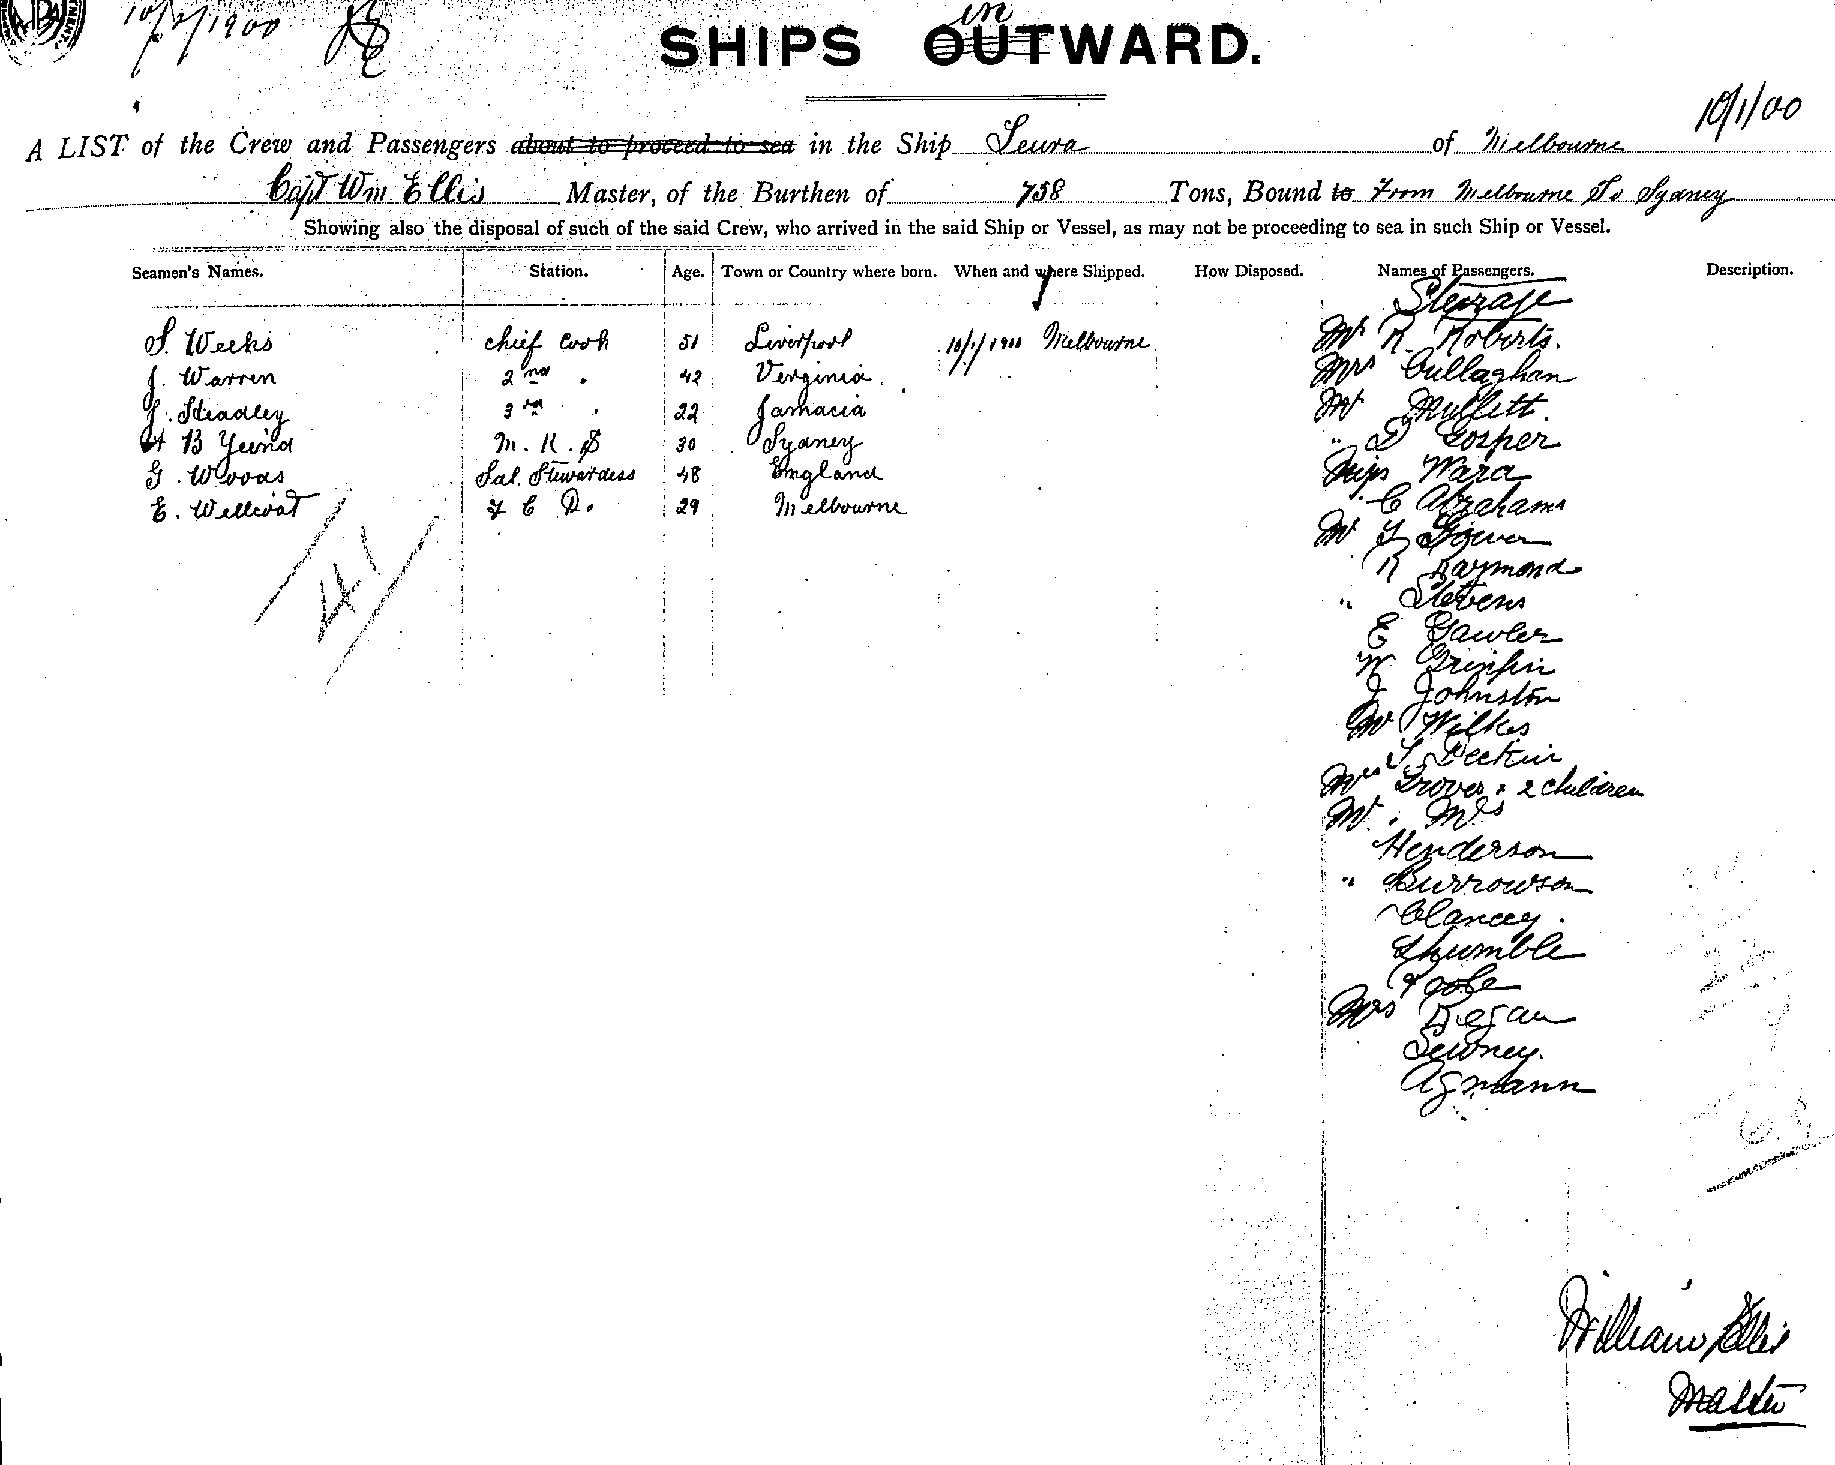 10/1/1900
in
SHIPS OUTWARD.
10/1/00
A LIST of the Crew and Passengers about to proceed to sea in the Ship Leura of Melbourne
Capt Wm Ellis Master, of the Burthen of 758 Tons, Bound to From Melbourne To Sydney
Showing also the disposal of such of the said Crew, who arrived in the said Ship or Vessel, as may not be proceeding to sea in such Ship or Vessel.
Seamen's Names. Station. Age. Town or Country where born. When and where Shipped. How Disposed. Names of Passengers. Description.
Steerage
S. Weeks chief Cook 51 Liverpool 10/1/1900 Melbourne Mr R. Roberts.
J. Warren 2nd " 42 Verginia Mrs Cullaghan
J. Steadley 3rd " 22 Jamacia Mr Mullett.
H B Yeend M. R. S 30 Sydney " D Gosper
G. Woods Sal. Stewardess 48 England Miss Ward
E. 29 Melbourne C Abrahams
Mr Gower
R Raymond
41
" Stevens
E Gawler
W. Griffin
J Johnston
Mr Wilkes
S. Deekin
Mrs Groves & 2 children
Mr & Mrs
Henderson
" Burrowson
Clancey.
Thumble
Poole
Mrs Regan
Sewney.
Agmann
68
William Ellis
Master